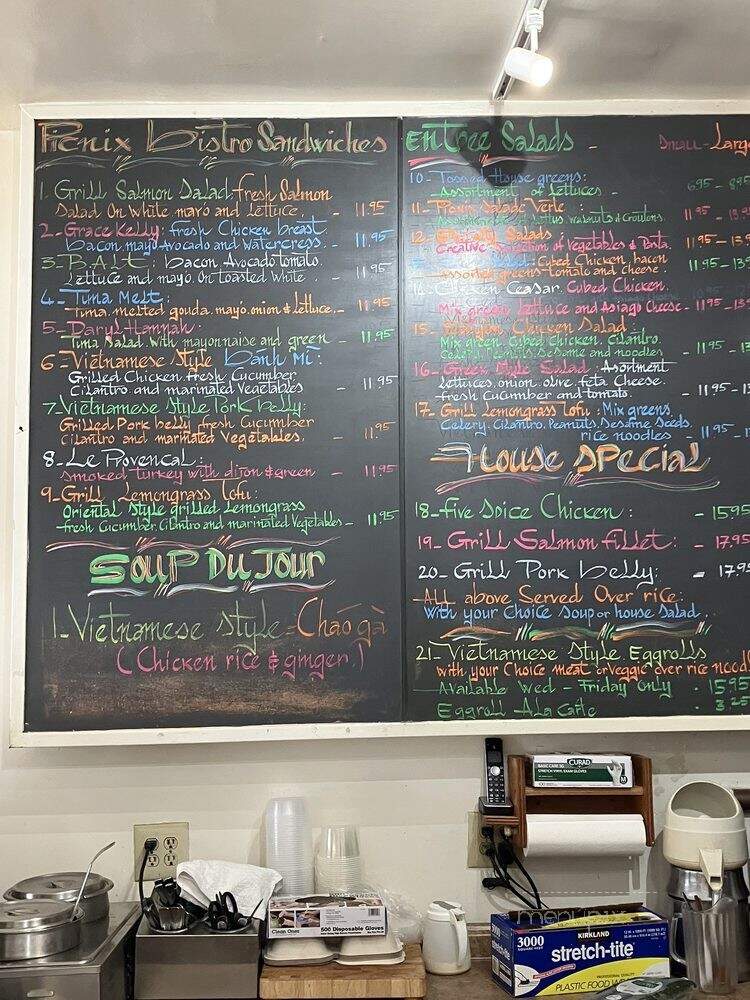 Picnix Bistro Sandwiches
1- Grill Salmon Salad: fresh Salmon
Salad On White mayo and lettuce. - 11.95
2- Grace Kelly: fresh Chicken breast.
bacon, mayo, Avocado and watercress. - 11.95
3- B.A.L.T: bacon, Avocado, tomato.
Lettuce and mayo. On toasted White - 11.95
4- Tuna Melt:
Tuna, melted gouda, mayo, onion & lettuce. - 11.95
5- Daryl Hannah:
Tuna Salad With mayonnaise and green - 11.95
6- Vietnamese Style Banh Mi:
Grilled Chicken, fresh Cucumber
Cilantro and marinated Vegetables - 11.95
7- Vietnamese Style Pork belly:
Grilled Pork belly, fresh Cucumber
Cilantro and marinated Vegetables. - 11.95
8- Le Provencal:
Smoked turkey with dijon & green - 11.95
9- Grill Lemongrass Tofu:
Oriental Style grilled Lemongrass
fresh Cucumber, Cilantro and marinated Vegetables - 11.95
Soup Du Jour
1- Vietnamese Style - Cháo gà
(Chicken rice & ginger)
Entree Salads - Small - Larg
10- Tossed House greens:
Assortment of lettuces - 6.95 - 8.95
11- Picnix Salade Verte:
lettus walnuts & Croutons. 11.95
12- Salads
Creative Selection of Vegetables & Pasta. 11.95
Cubed Chicken, bacon
Assorted greens tomato and cheese. 11.95
14- Chicken Ceasar. Cubed Chicken.
Mix green Lettuce and Asiago Cheese - 11.95
15- Chicken Salad:
Mix green, Cubed chicken, Cilantro.
Celery, Peanuts, Sesame and noodles - 11.95
16- Greek Style Salad: Asortment
lettuces, onion, olive, feta Cheese.
fresh Cucumber and tomato. - 11.95
17- Grill Lemongrass Tofu: Mix greens,
Celery, Cilantro, Peanuts, Sesame Seeds,
rice noodles 11.95
House Special
18- Five Spice Chicken: - 15.95
19- Grill Salmon fillet: - 17.95
20- Grill Pork belly: - 17.95
All above Served Over rice
With your Choice Soup or house Salad.
21- Vietnamese Style Eggrolls
With your Choice meat or Veggie over rice nood
Available Wed - Friday Only . 15.95
Eggroll A La Carte . 3.25
CURAD
BASIC CARE 3G
STRETCH VINYL EXAM GLOVES
M
Clean Ones
500 Disposable Gloves
3000
SQUARE FEET
KIRKLAND
stretch-tite
PROFESSIONAL QUALITY
PLASTIC FOOD W
menu